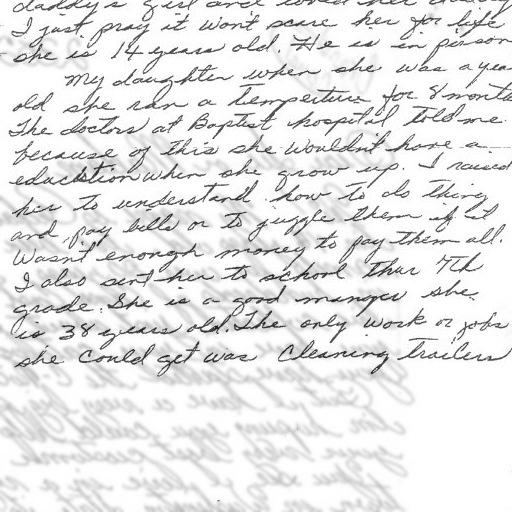 daddy's girl and loved her daddy
I just pray it wont scare her for life
she is 14 years old. He is in prison
My daughter when she was a year
old she ran a temperture for 8 months
The doctors at Baptist hospital told me
because of this she wouldn't have a
education when she grow up. I raised
her to understand how to do thing
and pay bills or to juggle them if it
Wasn't enough money to pay them all.
I also sent her to school thur 7th
grade. She is a good manger she
is 38 years old. The only work or jobs
she could get was cleaning trailers